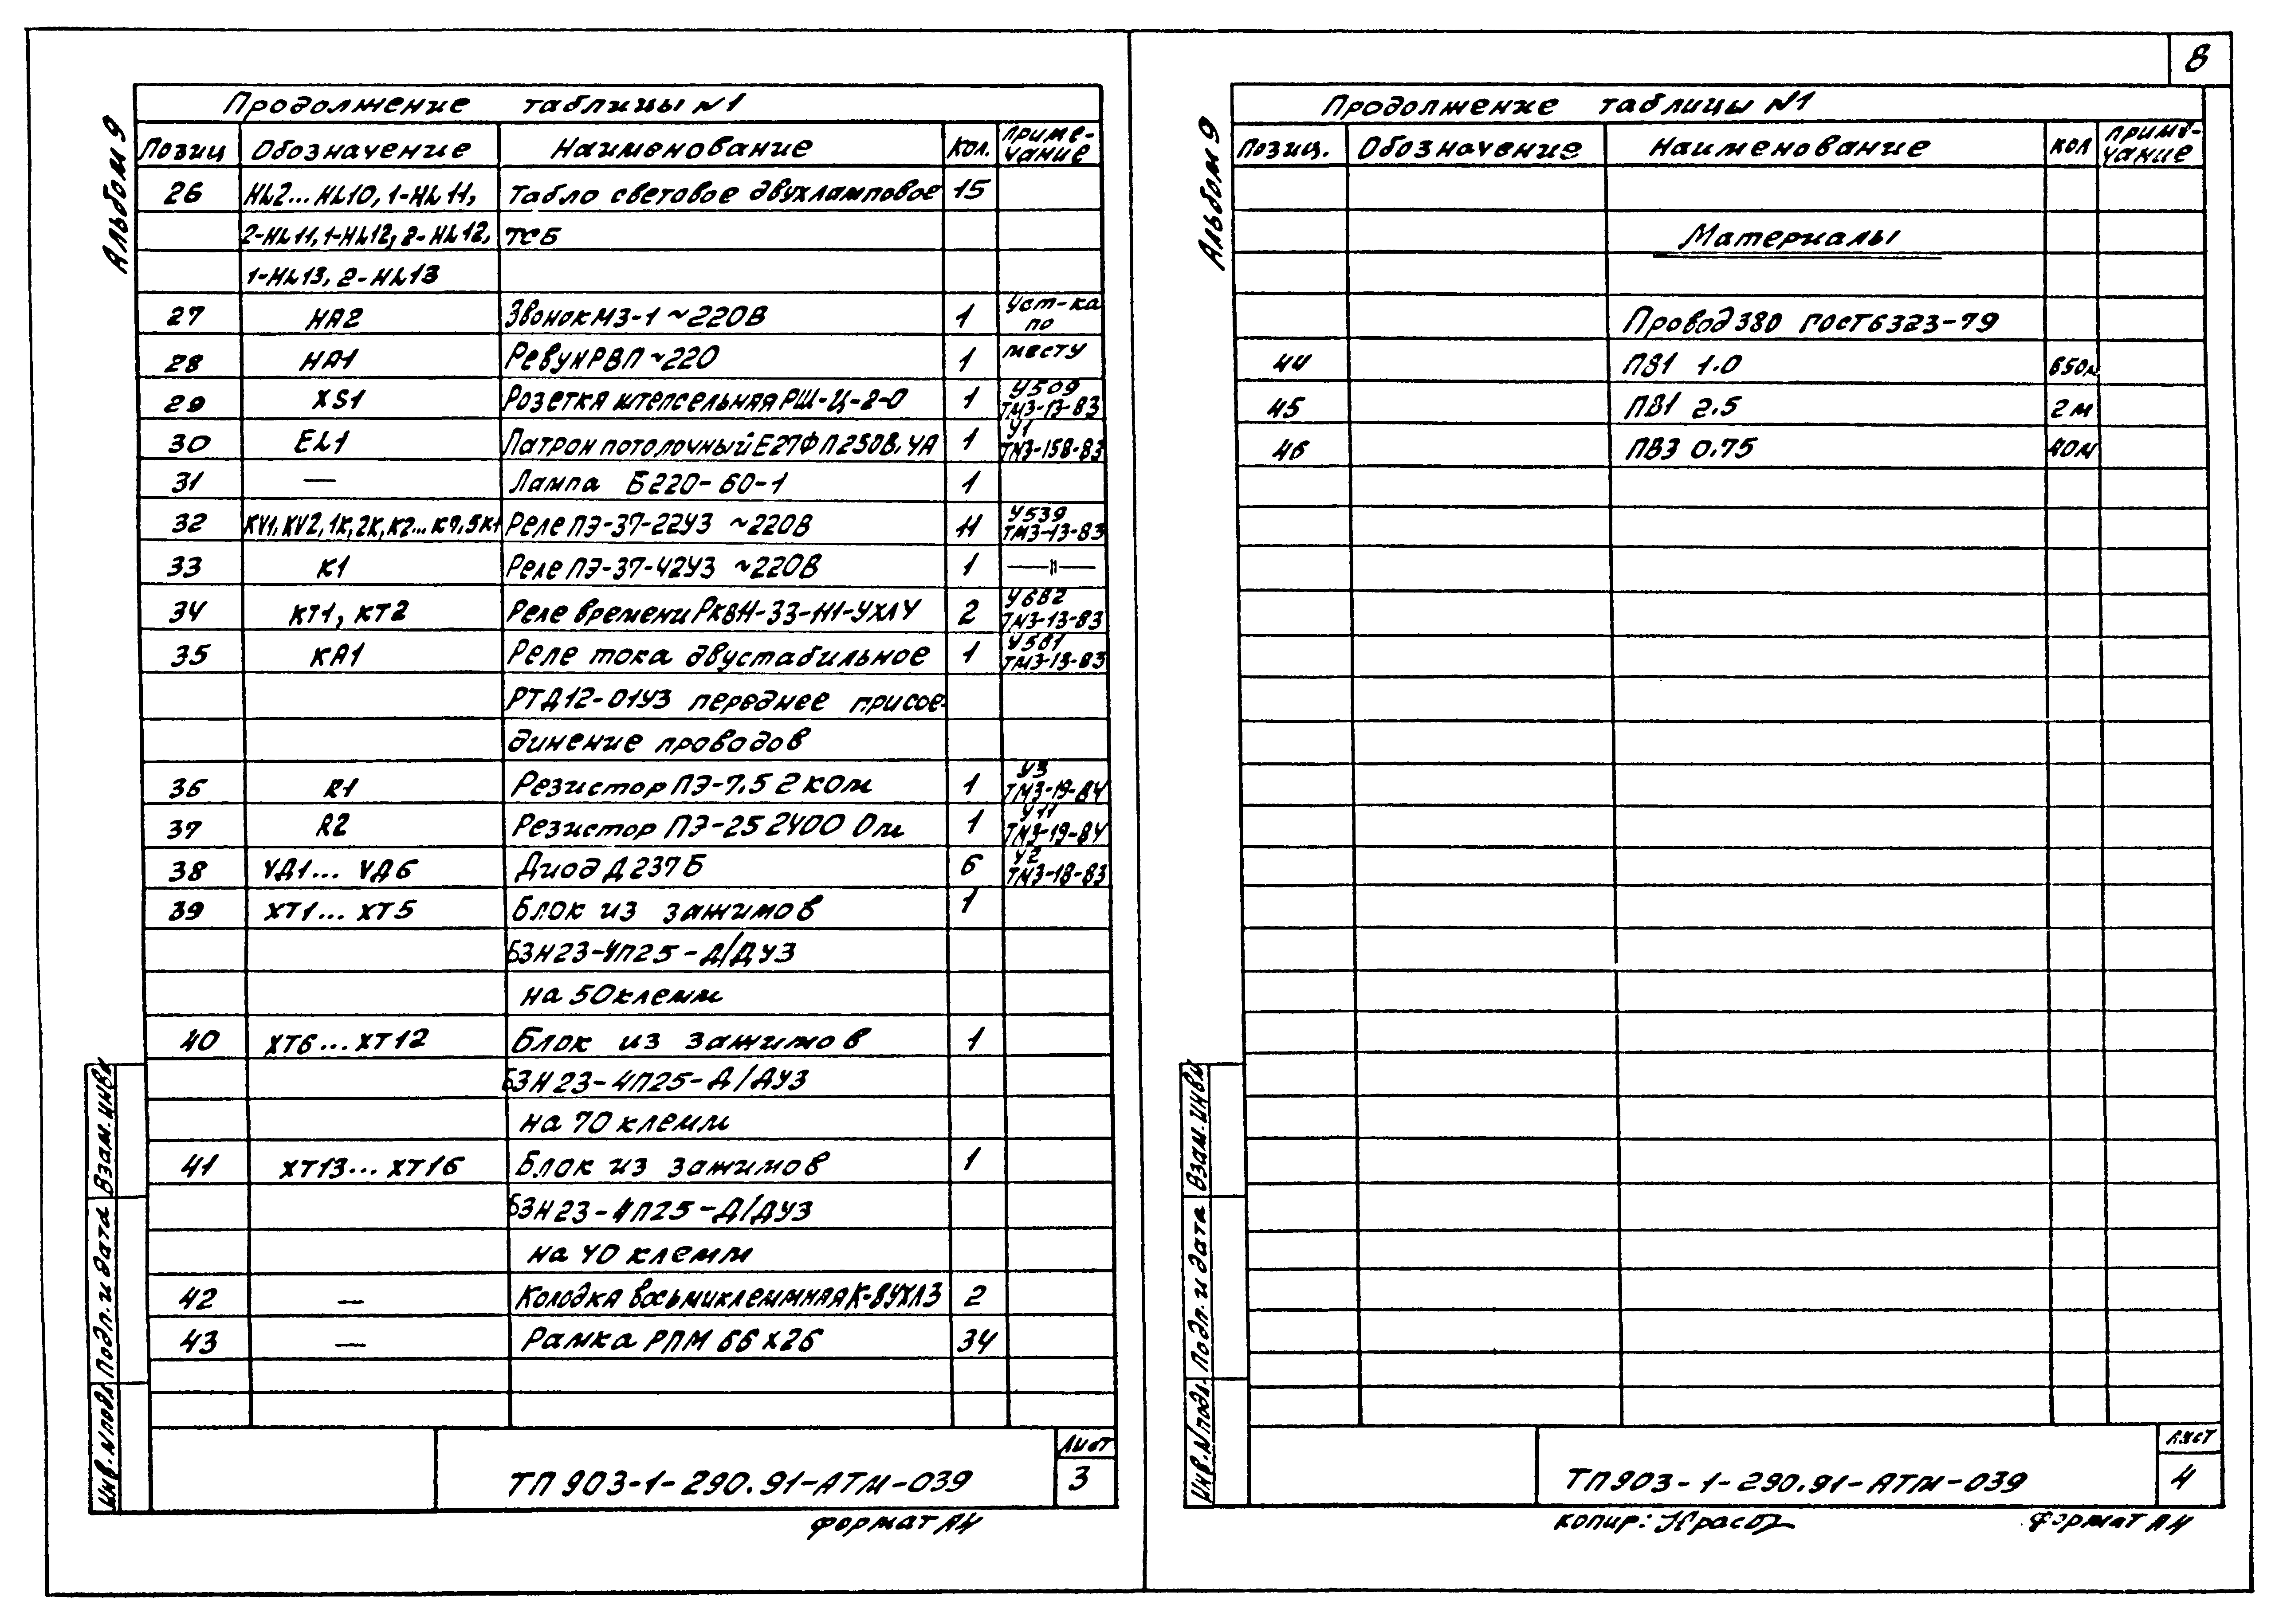 8
Альбом 9
Продолжение таблицы N1
Позиц Обозначение Наименование Кол. Приме-
чание
26 HL2...HL10, 1-HL11, Табло световое двухламповое 15
2-HL11, 1-HL12, 2-HL12, ТСБ
1-HL13, 2-HL13
27 HA2 Звонок МЗ-1 ~220В 1 Уст-ка
по
28 HA1 Ревун РВП ~220 1 месту
29 XS1 Розетка штепсельная РШ-Ц-2-0 1 У509
ТМ3-13-83
30 EL1 Патрон потолочный Е27ФП250В, 4А 1 У1
ТМ3-158-83
31 — Лампа Б220-60-1 1
32 KV1, KV2, 1K, 2K, K2...K9, 5K1 Реле ПЭ-37-22У3 ~220В 11 У539
ТМ3-13-83
33 K1 Реле ПЭ-37-42У3 ~220В 1 —"—
34 KT1, KT2 Реле времени РКВН-33-Н1-УХЛ4 2 У682
ТМ3-13-83
35 KA1 Реле тока двустабильное 1 У581
ТМ3-13-83
РТД12-01У3 переднее присое-
динение проводов
36 R1 Резистор ПЭ-7.5 2 кОм 1 У3
ТМ3-19-84
37 R2 Резистор ПЭ-25 2400 Ом 1 У11
ТМ3-19-84
38 VД1... VД6 Диод Д237Б 6 У2
ТМ3-18-83
39 XT1... XT5 Блок из зажимов 1
БЗН23-4П25-Д/ДУ3
на 50 клемм
40 XT6...XT12 Блок из зажимов 1
БЗН23-4П25-Д/ДУ3
на 70 клемм
41 XT13... XT16 Блок из зажимов 1
БЗН23-4П25-Д/ДУ3
на 40 клемм
42 — Колодка восьмиклеммная К-8УХЛ3 2
43 — Рамка РПМ 66х26 34
Взам. инв.N
Подп. и дата
Инв. N подл.
ТП 903-1-290.91-АТМ-039
Лист
3
Формат А4
Альбом 9
Продолжение таблицы N1
Позиц. Обозначение Наименование Кол Приме-
чание
Материалы
Провод 380 ГОСТ 6323-79
44 ПВ1 1.0 650м
45 ПВ1 2.5 2 м
46 ПВ3 0.75 40м
Взам. инв.N
Подп. и дата
Инв. N подл.
ТП903-1-290.91-АТМ-039
Лист
4
копир:
Формат А4